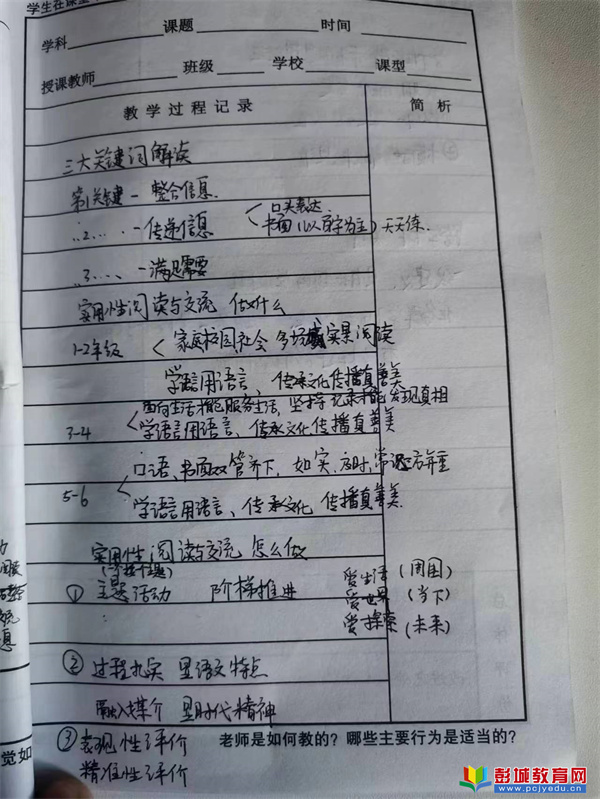 学生在课堂
学科 课题 时间
授课教师 班级 学校 课型
教学过程记录 简析
三大关键词解读
第1关键 - 整合信息.
〃2〃 - 传递信息 < 口头表达.
书面(以百字为主) 天天练.
〃3〃 - 满足需要
实用性阅读与交流 做什么
1-2年级 < 家庭校园社会 多场域实景阅读
学语言用语言、传承文化传播真善美
面向生活才能服务生活, 坚持记录才能发现真相
3-4 < 学语言用语言、传承文化传播真善美
口语、书面双管齐下, 如实、应时、
5-6 <
学语言用语言、传承文化 传播真善美.
实用性阅读与交流 怎么做
① 主题活动 阶梯推进
爱生活 (周围)
爱世界 (当下)
爱探索 (未来)
② 过程扎实 显语文特点
融入媒介 显时代精神
③ 表现性评价 老师是如何教的?哪些主要行为是适当的?
精准性评价
息
觉如
彭城教育网
www.pcjyedu.cn